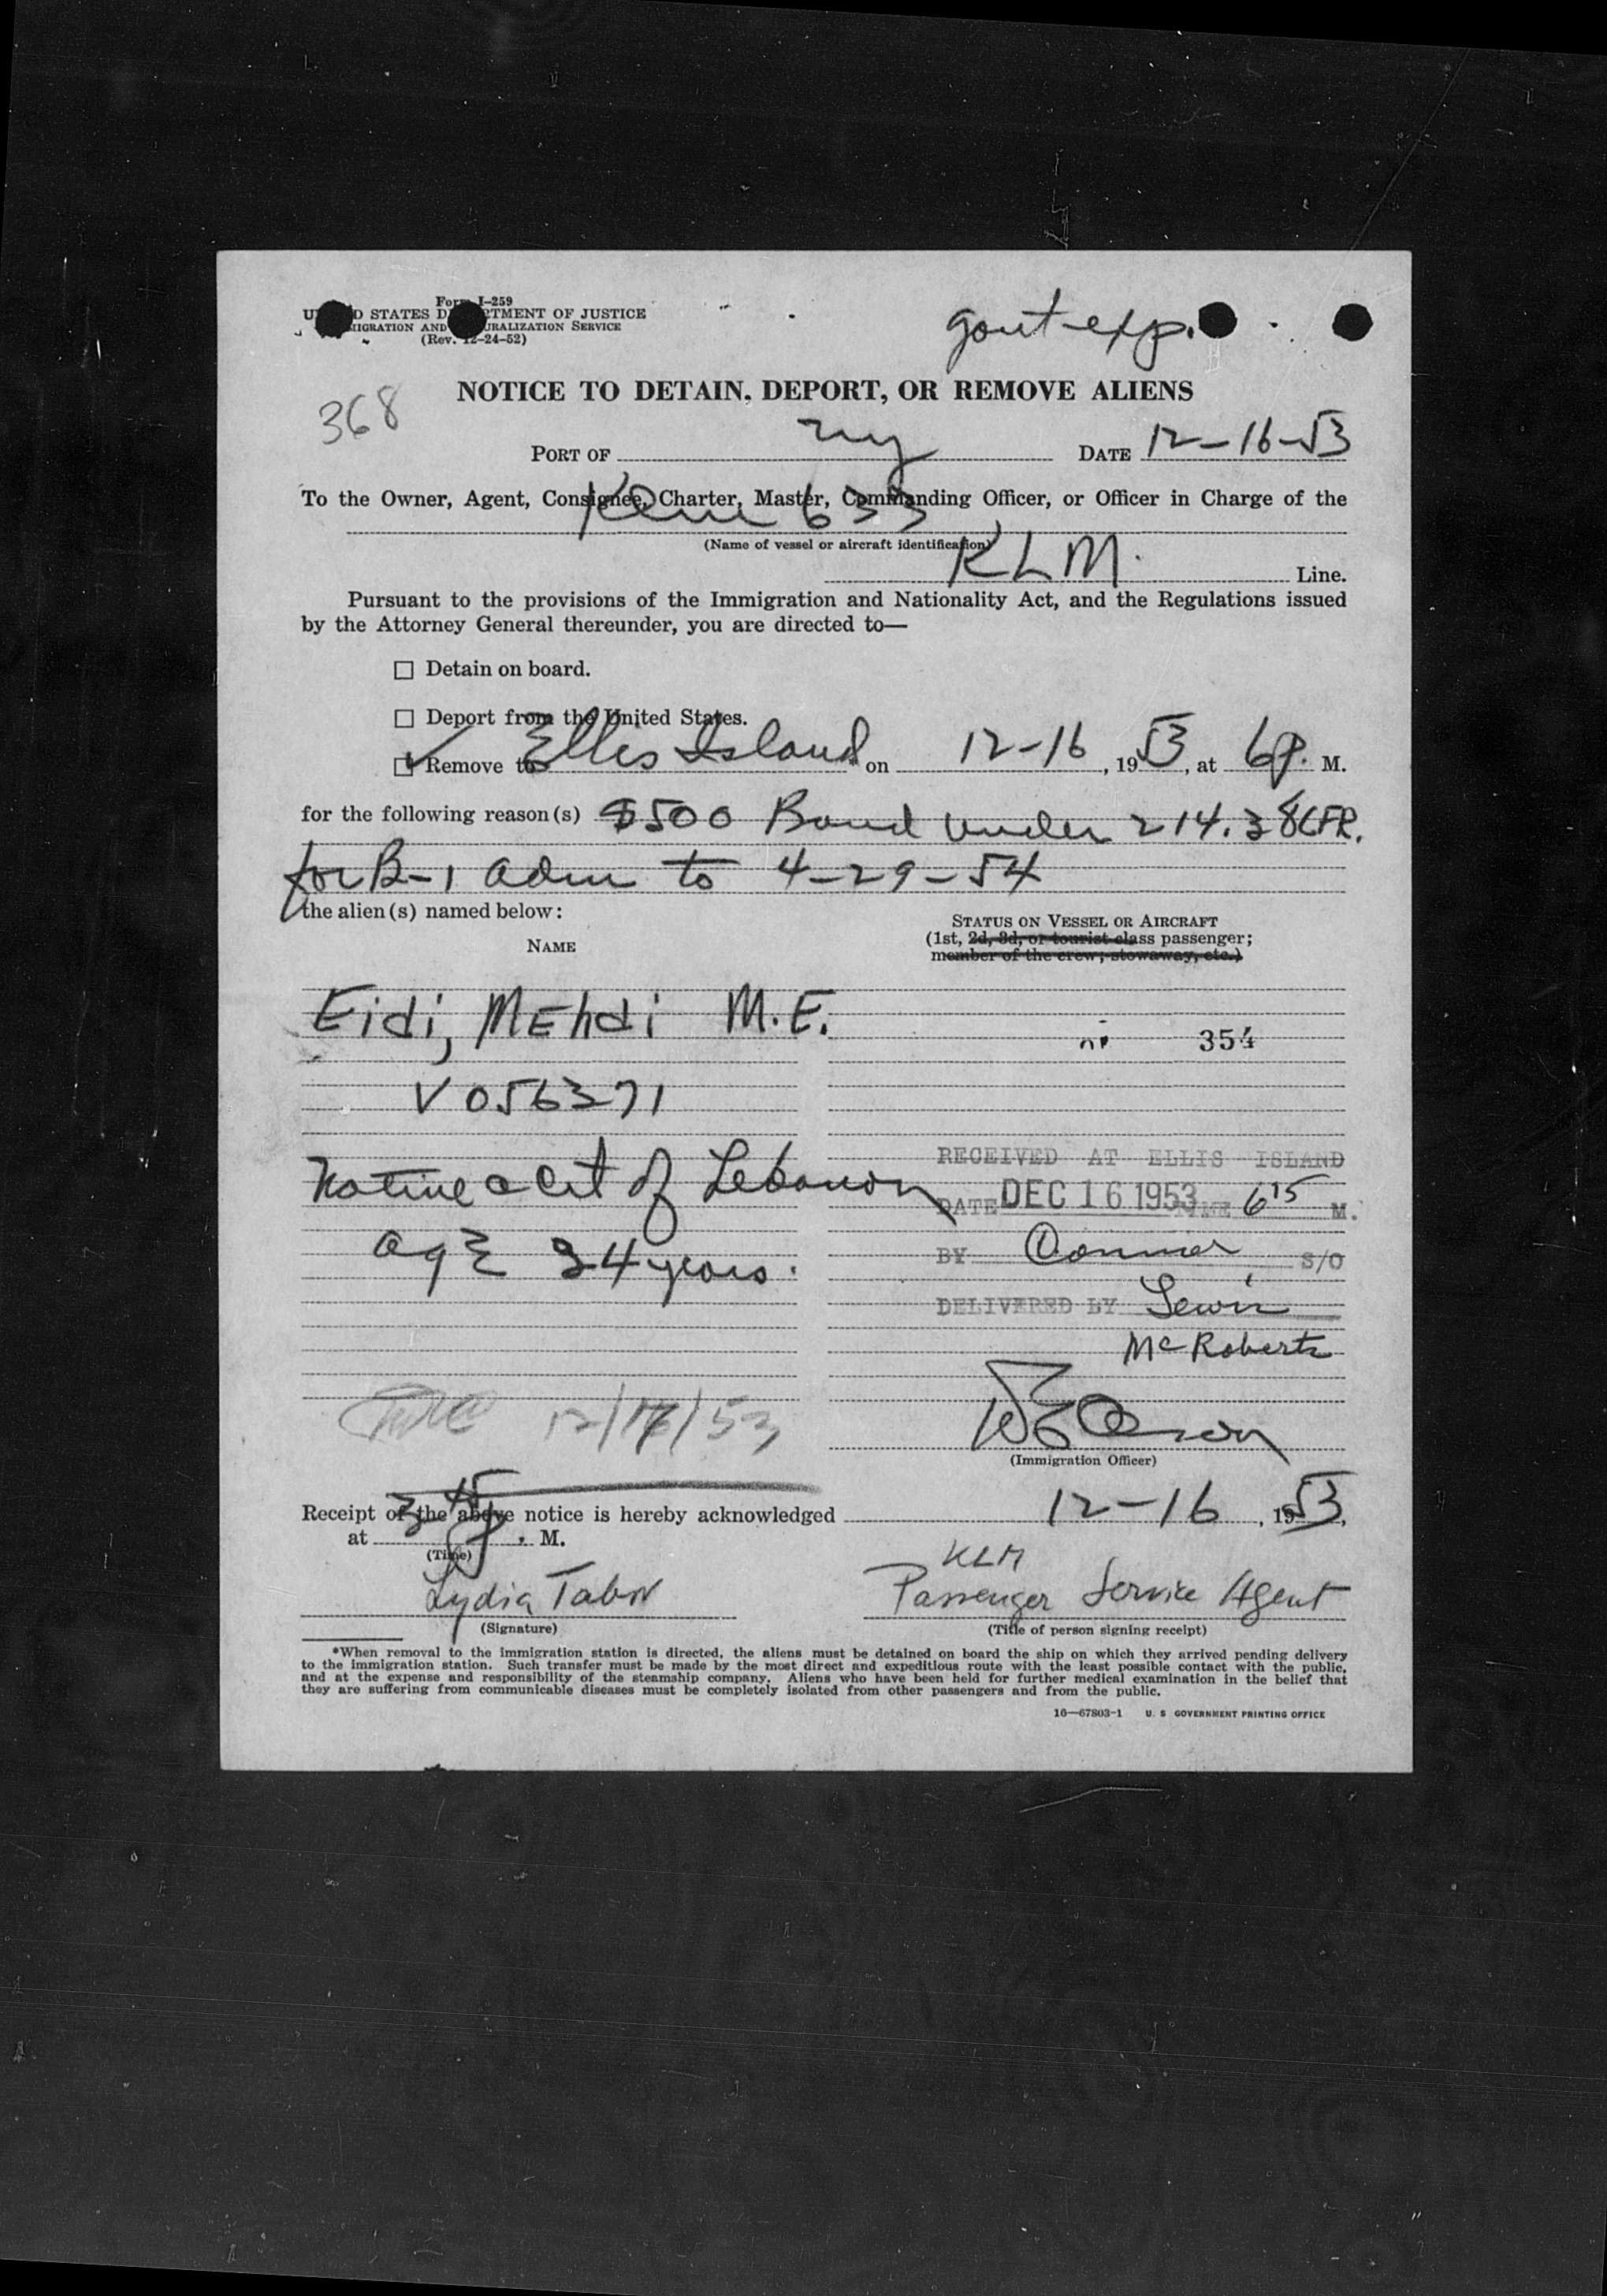 Form I-259
D STATES D RTMENT OF JUSTICE
IGRATION AND URALIZATION SERVICE
(Rev. 12-24-52)
govt exp.
368
NOTICE TO DETAIN, DEPORT, OR REMOVE ALIENS
PORT OF NY DATE 12-16-53
To the Owner, Agent, Consignee, Charter, Master, Commanding Officer, or Officer in Charge of the
633
(Name of vessel or aircraft identification)
KLM. Line.
Pursuant to the provisions of the Immigration and Nationality Act, and the Regulations issued
by the Attorney General thereunder, you are directed to—
☐ Detain on board.
☐ Deport from the United States.
☑ Remove to Ellis Island* on 12-16, 1953, at 6 p. M.
for the following reason(s) $500 Bond under 214.3 8CFR.
for B-1 adm to 4-29-54
the alien(s) named below:
NAME
STATUS ON VESSEL OR AIRCRAFT
(1st, 2d, 3d, or tourist class passenger;
member of the crew; stowaway, etc.)
Eidi, MEhdi M.E.
354
V 056371
Native & Cit of Lebanon
RECEIVED AT ELLIS ISLAND
DATE DEC 16 1953 TIME 6 15 M.
agE 34 years.
BY Connor S/O
DELIVERED BY Lewis
McRoberts
12/17/53
(Immigration Officer)
Receipt of the above notice is hereby acknowledged 12-16, 1953,
at 3 45 p. M.
(Time)
KLM
Lydia Tabor Passenger Service Agent
(Signature) (Title of person signing receipt)
*When removal to the immigration station is directed, the aliens must be detained on board the ship on which they arrived pending delivery
to the immigration station. Such transfer must be made by the most direct and expeditious route with the least possible contact with the public,
and at the expense and responsibility of the steamship company. Aliens who have been held for further medical examination in the belief that
they are suffering from communicable diseases must be completely isolated from other passengers and from the public.
16—67803-1 U. S GOVERNMENT PRINTING OFFICE